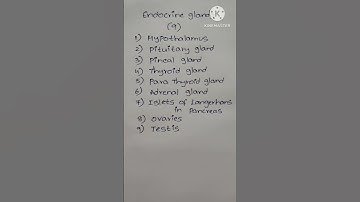 Endocrine gland
(9)
1) Hypothalamus
2) Pituitary gland
3) Pineal gland
4) Thyroid gland
5) Para Thyroid gland
6) Adrenal gland
7) Islets of Langerhans
in Pancreas
8) Ovaries
9) Testis
K
KINEMASTER